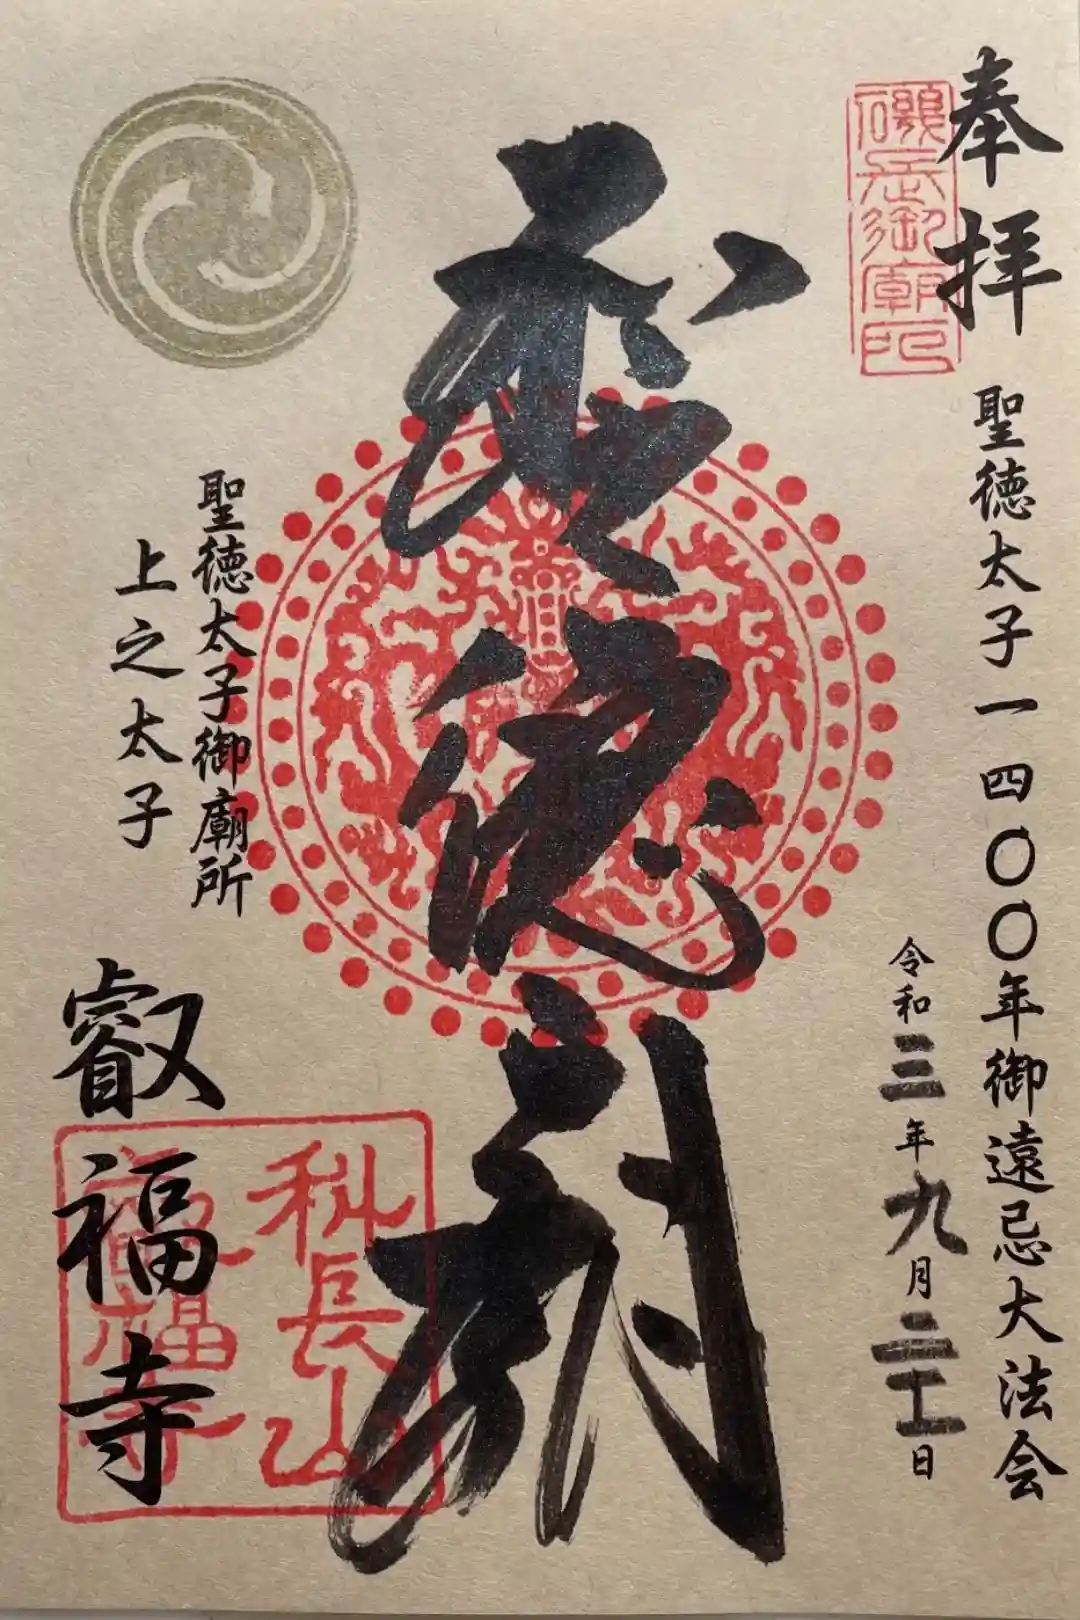 奉拝
磯長御廟印
聖徳太子一四〇〇年御遠忌大法会
令和三年九月二十一日
聖徳
聖徳太子御廟所
上之太子
叡福寺
科長山
叡福寺